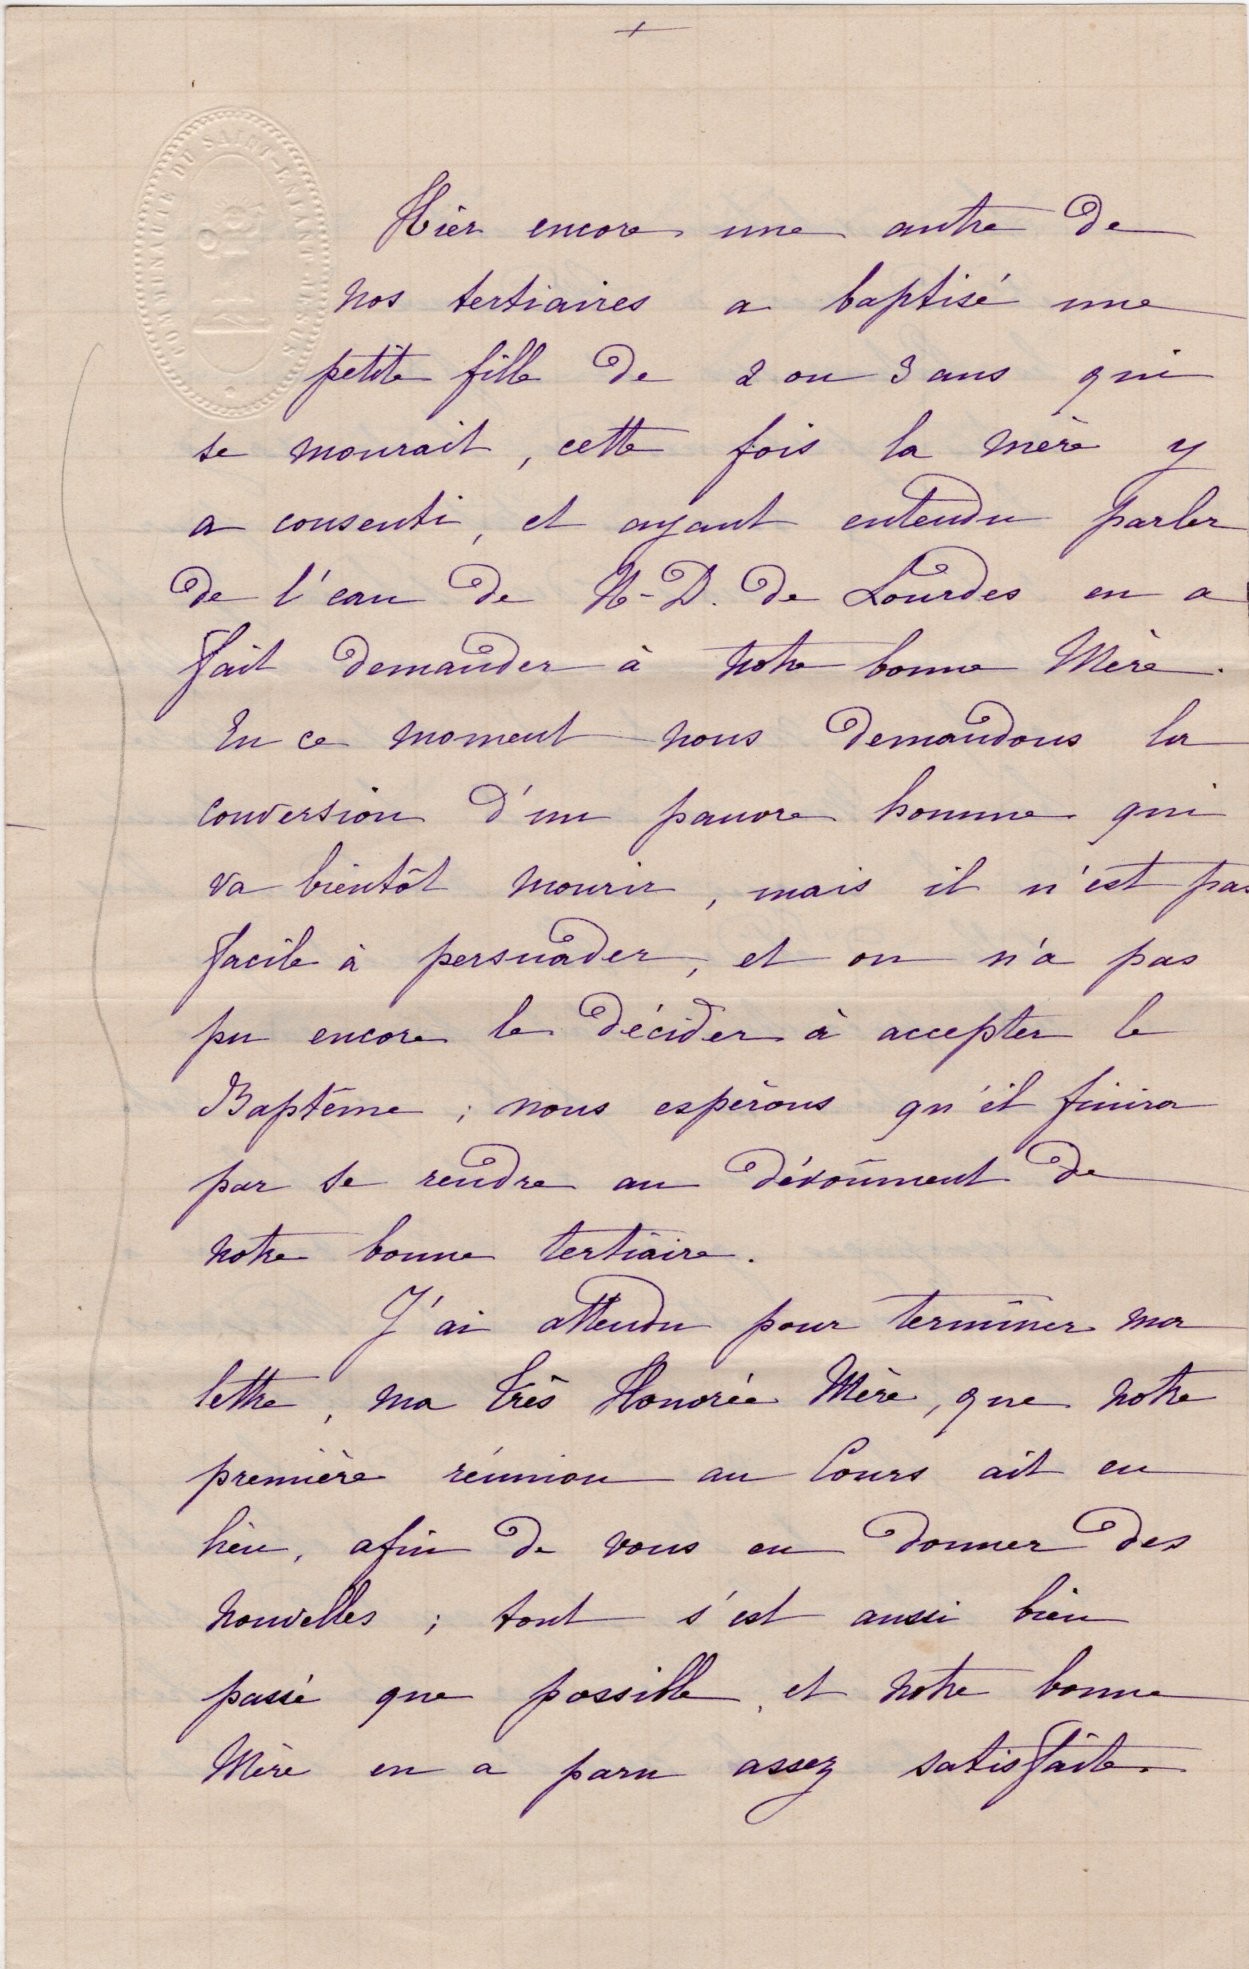 +
COMMUNAUTÉ DU SAINT-ENFANT-JÉSUS
Hier encore une autre de
nos tertiaires a baptisé une
petite fille de 2 ou 3 ans qui
se mourait, cette fois la mère y
a consenti, et ayant entendu parler
de l'eau de N-D. de Lourdes en a
fait demander à notre bonne Mère.
En ce moment nous demandons la
conversion d'un pauvre homme qui
va bientôt mourir, mais il n'est pas
facile à persuader, et on n'a pas
pu encore le décider à accepter le
Baptême ; nous espérons qu'il finira
par se rendre au dévoûment de
notre bonne tertiaire.
J'ai attendu pour terminer ma
lettre, ma très Honorée Mère, que notre
première réunion au Cours ait eu
lieu, afin de vous en donner des
nouvelles ; tout s'est aussi bien
passé que possible, et notre bonne
Mère en a paru assez satisfaite.